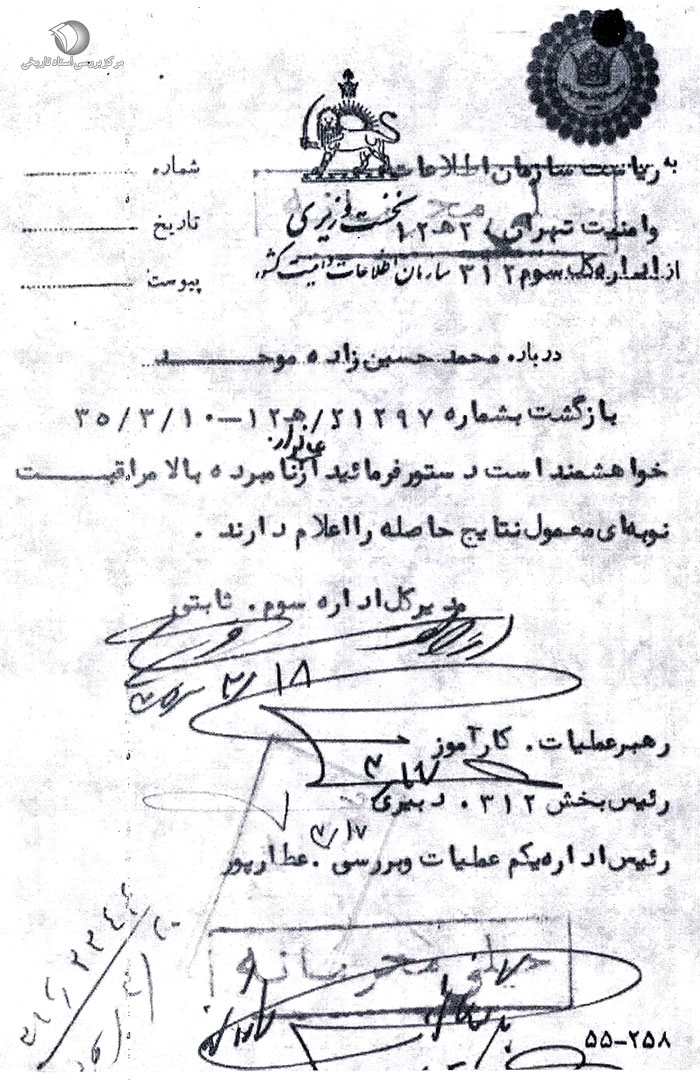 مرکز بررسی اسناد تاریخی
به ریاست سازمان اطلاعات
شماره
و امنیت تهران ۱۲هـ۲
نخست وزیری
تاریخ
از اداره کل سوم ۳۱۲
سازمان اطلاعات و امنیت کشور
پیوست
درباره محمد حسین زاده موحد
بازگشت بشماره ۲۱۲۹۷/هـ۱۲-۳۵/۳/۱۰
خواهشمند است دستور فرمائید از نامبرده بالا مراقبت
نوبه‌ای معمول نتایج حاصله را اعلام دارند .
مدیرکل اداره سوم . ثابتی
۳/۱۸
رهبر عملیات . کارآموز
رئیس بخش ۳۱۲ . دبیری
۳/۱۷
رئیس اداره یکم عملیات و بررسی . عطارپور
خیلی محرمانه
۵۵-۲۵۸